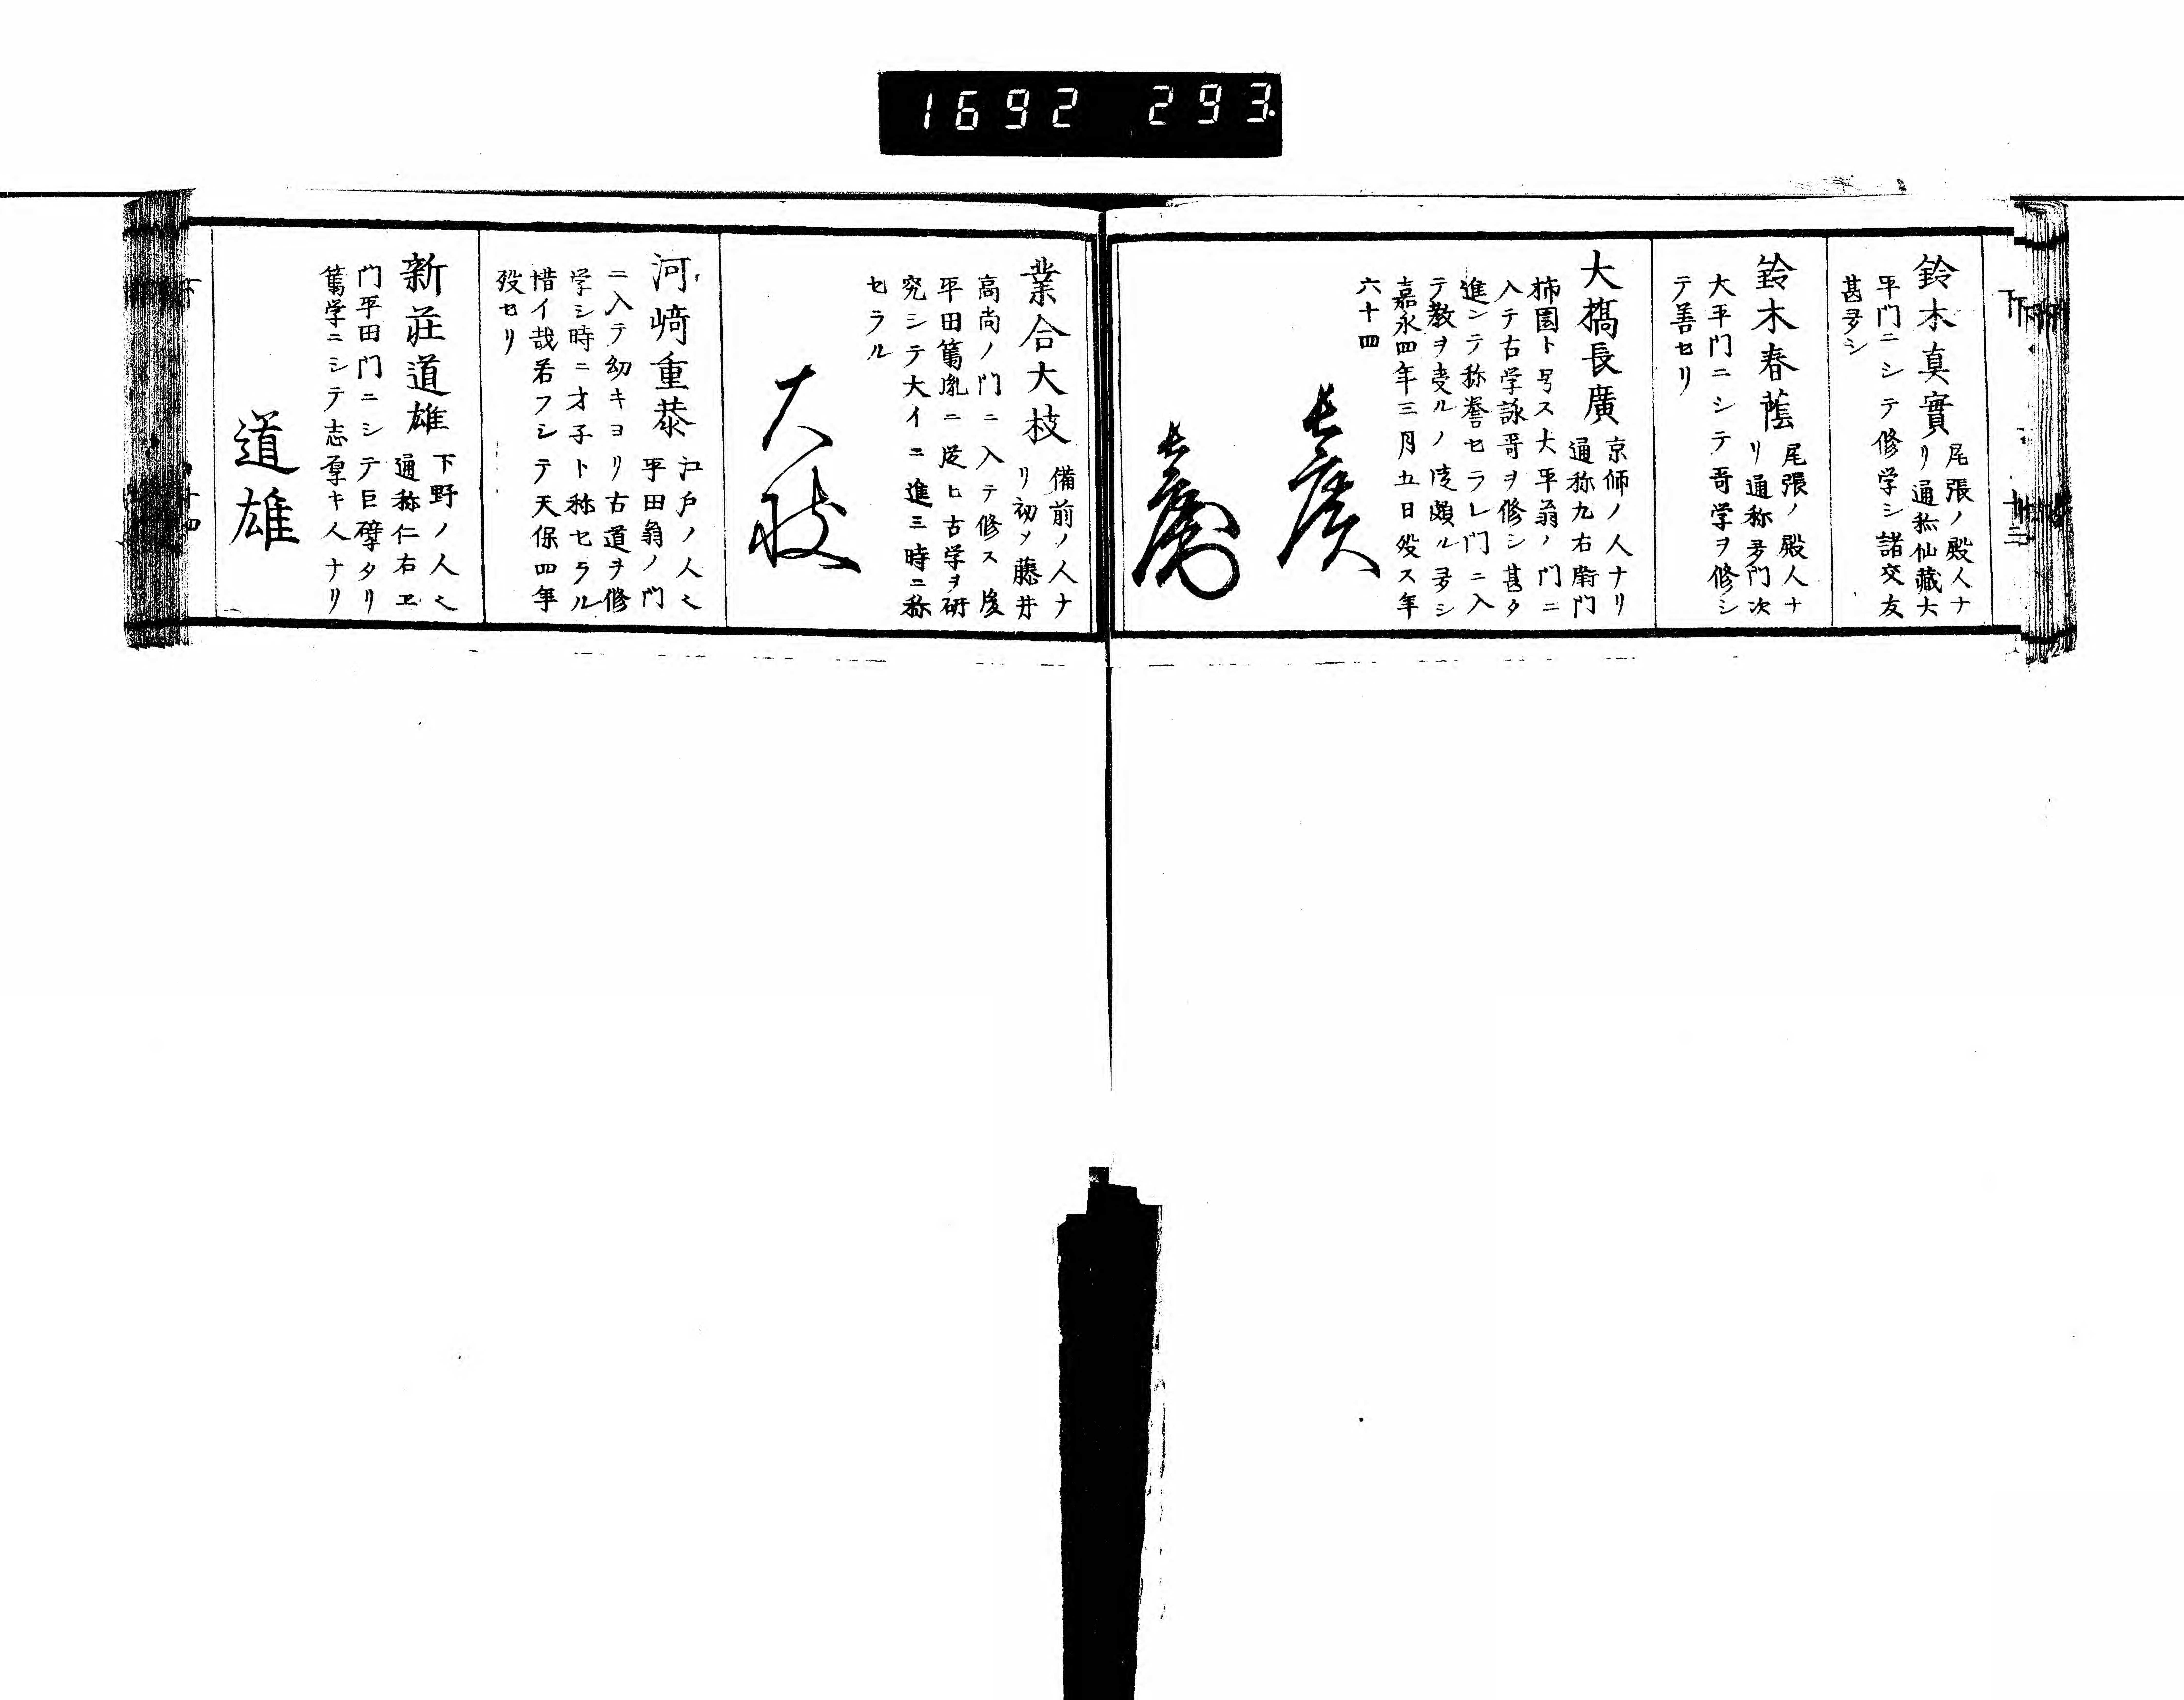 1692 293
鈴木真實
尾張ノ殿人ナ
リ通称仙藏大
平門ニシテ修学シ諸交友
甚多シ
鈴木春蔭
尾張ノ殿人ナ
リ通称多門次
大平門ニシテ哥学ヲ修シ
テ善セリ
大橋長廣
京師ノ人ナリ
通称九右衛門
柿園ト号ス大平翁ノ門ニ
入テ古学詠哥ヲ修シ甚タ
進ンテ称誉セラレ門ニ入
テ教ヲ受ルノ徒頗ル多シ
嘉永四年三月五日歿ス年
六十四
長廣
長廣
業合大枝
備前ノ人ナ
リ初メ藤井
高尚ノ門ニ入テ修ス後
平田篤胤ニ従ヒ古学ヲ研
究シテ大イニ進三時ニ称
セラル
大枝
河﨑重恭
江戸ノ人也
平田翁ノ門
ニ入テ幼キヨリ古道ヲ修
学シ時ニ才子ト称セラル
惜イ哉若フシテ天保四年
歿セリ
新莊道雄
下野ノ人也
通称仁右ヱ
門平田門ニシテ巨擘タリ
篤学ニシテ志厚キ人ナリ
道雄